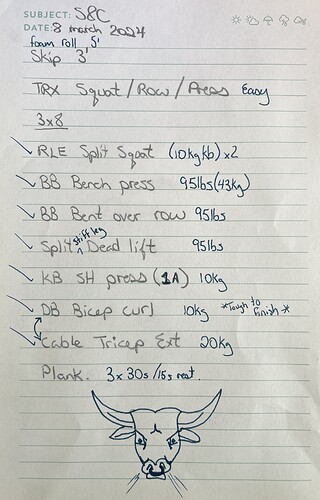 SUBJECT: S&C
DATE: 8 march 2024
foam roll 5'
Skip 3'
TRX Squat / Row / Press Easy
3x8
RLE Split Squat (10kg kb) x2
BB Bench press 95lbs (43kg)
BB Bent over row 95lbs
Split stiff leg Dead lift 95lbs
KB SH press (1A) 10kg
DB Bicep curl 10kg *Tough to finish*
Cable Tricep Ext 20kg
Plank. 3 x 30s /15s rest.